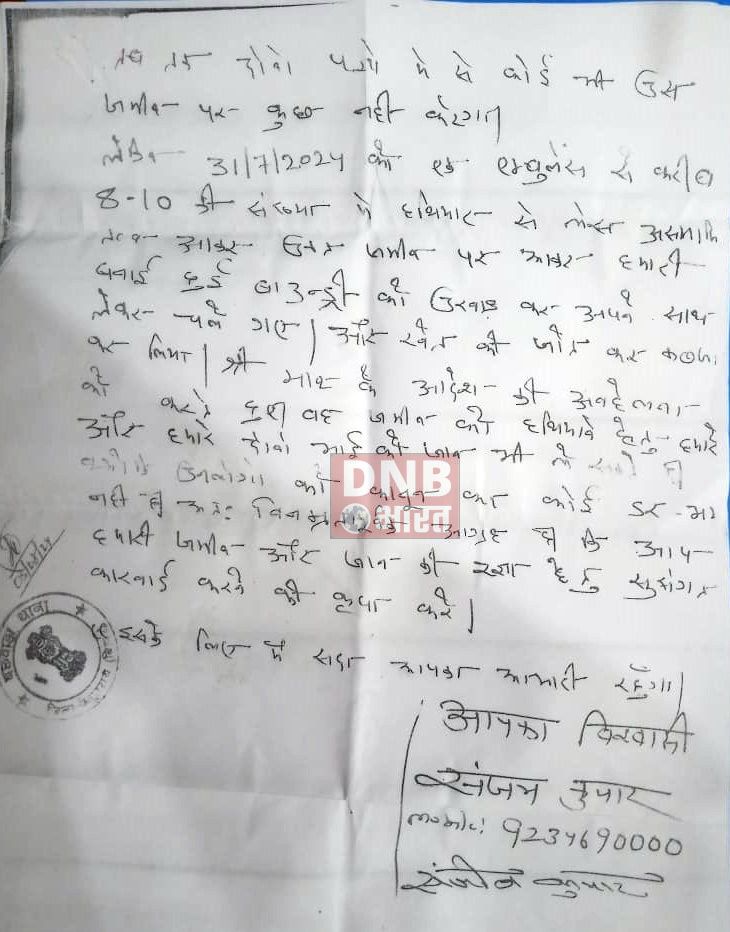 तब तक दोनो पक्षो मे से कोई भी उस
जमीन पर कुछ नही करेगा।
लेकिन 31/7/2024 को एक एम्बुलेंस से करीब
8-10 की संख्या मे हथियार से लेस असमाजि
तत्व आकर उक्त जमीन पर आकर हमारी
बनाई हुई बाउन्ड्री को उखाड़ कर अपने साथ
लेकर चले गए। और खेत को जोत कर कब्जा
कर लिया। श्री मान के आदेश की अवहेलना
को करते हुए वह जमीन को हथियाने हेतु हमारे
और हमारे दोनो भाई की जान भी ले सकते है
क्योकि उनलोगो को कानून का कोई डर-भय
नही है अतः विनम्रतापूर्वक आग्रह है कि आप
हमारी जमीन और जान की रक्षा हेतु सुसंगत
कारवाई करने की कृपा करे।
इसके लिए मै सदा आपका आभारी रहूँगा।
आपका विश्वासी
संजय कुमार
मो०: 9234690000
संजीव कुमार
DNB
भारत
थाना